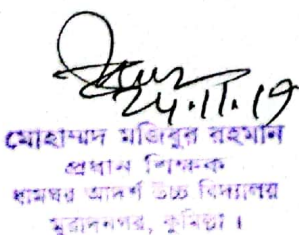 24.11.19
মোহাম্মদ মজিবুর রহমান
প্রধান শিক্ষক
ধামঘর আদর্শ উচ্চ বিদ্যালয়
মুরাদনগর, কুমিল্লা।